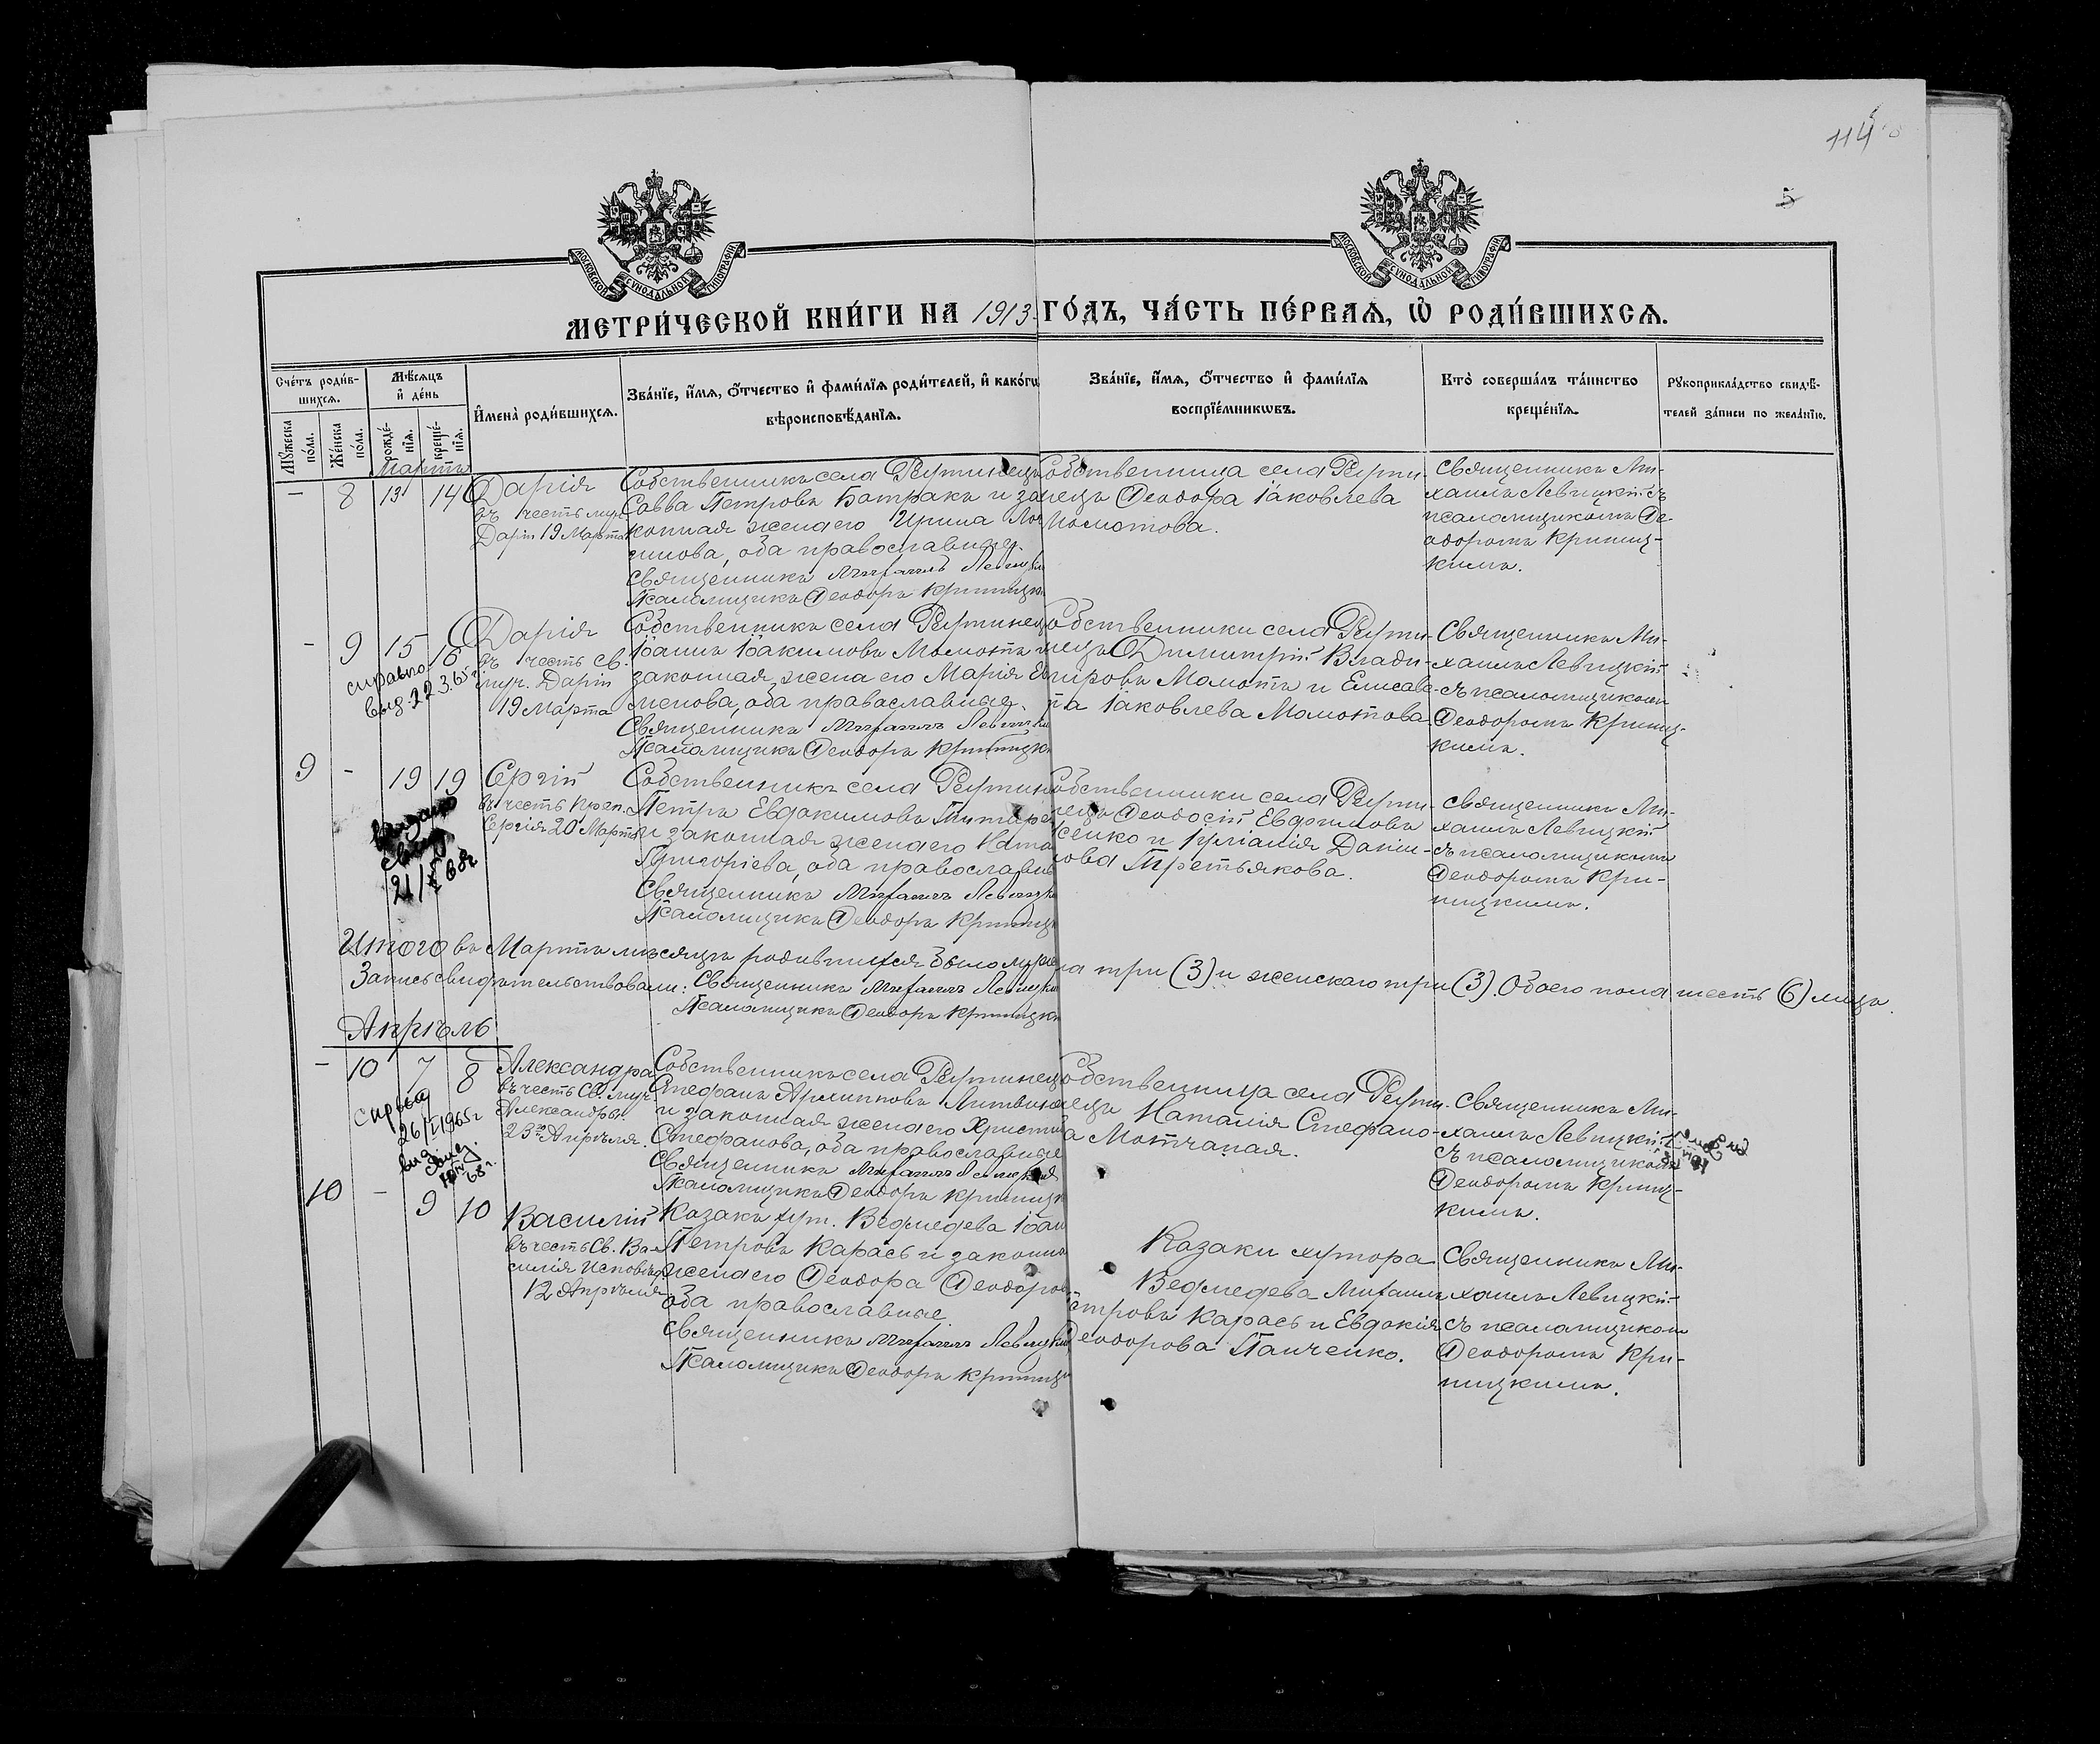 114
5
МОСКОВСКОЙ СУНОДАЛЬНОЙ ТИПОГРАФІИ
МОСКОВСКОЙ СУНОДАЛЬНОЙ ТИПОГРАФІИ
МЕТРИ́ЧЕСКОЙ КНИ́ГИ НА 1913 ГО́ДЪ, ЧА́СТЬ ПЕ́РВАѦ, Ѡ҆ РОДИ́ВШИХСѦ.
Сче́тъ роди́в-
шихсѧ.
Мꙋ́жеска по́ла.
Же́нска по́ла.
Мѣ́сѧцъ и҆ де́нь
рожде́-нїѧ.
креще́-нїѧ.
И҆мена̀ роди́вшихсѧ.
Зва́нїе, и҆́мѧ, ѻ҆́тчество и҆ фами́лїѧ роди́телей, и҆ како́гѡ
вѣроисповѣ́данїѧ.
Зва́нїе, и҆́мѧ, ѻ҆́тчество и҆ фами́лїѧ
воспрїе́мникѡвъ.
Кто̀ соверша́лъ та́инство
креще́нїѧ.
Рꙋкоприкла́дство свидѣ́-
телей за́писи по жела́нїю.
Марта
- 8 13 14 Дарія
въ честь муч.
Даріи 19 Марта
Собственникъ села Реутинецъ
Савва Петровъ Батракъ и за
конная жена его Ирина Лог
гинова, оба православные.
Священникъ Михаилъ Левицкій
Псаломщикъ Ѳеодоръ Криницкій
Собственница села Реути-
нецъ Ѳеодора Іаковлева
Момотова.
Священникъ Ми-
хаилъ Левицкій съ
псаломщикомъ Ѳе-
одоромъ Криниц-
кимъ.
- 9 15 16 Дарія
въ честь св.
муч. Даріи
19 Марта
справка
выд. 22.3.65 г.
Собственникъ села Реутинецъ
Іоаннъ Іоакимовъ Момотъ и
законная жена его Марія Ев
менова, оба православные.
Священникъ Михаилъ Левицкій
Псаломщикъ Ѳеодоръ Криницкій
Собственники села Реути-
нецъ Димитрій Влади-
міровъ Момотъ и Елисаве-
та Іаковлева Момотова.
Священникъ Ми-
хаилъ Левицкій
съ псаломщикомъ
Ѳеодоромъ Криниц-
кимъ.
9 - 19 19 Сергій
въ честь Преп.
Сергія 20 Марта
68г
Собственникъ села Реутинецъ
Петръ Евдокимовъ Титаре
и законная жена его Ната
Григоріева, оба православные
Священникъ Михаилъ Левицкій
Псаломщикъ Ѳеодоръ Криницкій
Собственники села Реути-
нецъ Ѳеодосій Евфимовъ
Исенко и Іуліанія Дании-
лова Третьякова.
Священникъ Ми-
хаилъ Левицкій
съ псаломщикомъ
Ѳеодоромъ Кри-
ницкимъ.
Итого въ Мартѣ мѣсяцѣ родившихся было мужеска пола три (3) и женскаго три (3). Обоего пола шесть (6) лицъ.
Запись свидѣтельствовали: Священникъ Михаилъ Левицкій
Псаломщикъ Ѳеодоръ Криницкій
Апрѣль
- 10 7 8 Александра
въ честь Св. муч.
Александры
23го Апрѣля.
26/I 1965г
68г.
Собственникъ села Реутинецъ
Стефанъ Архипповъ Литвинен
и законная жена его Христин
Стефанова, оба православные
Священникъ Михаилъ Левицкій
Псаломщикъ Ѳеодоръ Криницкій
Собственница села Реути-
нецъ Наталія Стефано-
ва Мотчаная.
Священникъ Ми-
хаилъ Левицкій
съ псаломщикомъ
Ѳеодоромъ Криниц-
кимъ.
10 - 9 10 Василій
въ честь Св. Ва-
силія Исповѣд.
12 Апрѣля
Казакъ хут. Ведмедева Іоан
Петровъ Карась и законна
жена его Ѳеодора Ѳеодоров
оба православные.
Священникъ Михаилъ Левицкій
Псаломщикъ Ѳеодоръ Криницкій
Казаки хутора
Ведмедева Михаилъ
Петровъ Карась и Евдокія
Ѳеодорова Панченко.
Священникъ Ми-
хаилъ Левицкій
съ псаломщикомъ
Ѳеодоромъ Кри-
ницкимъ.